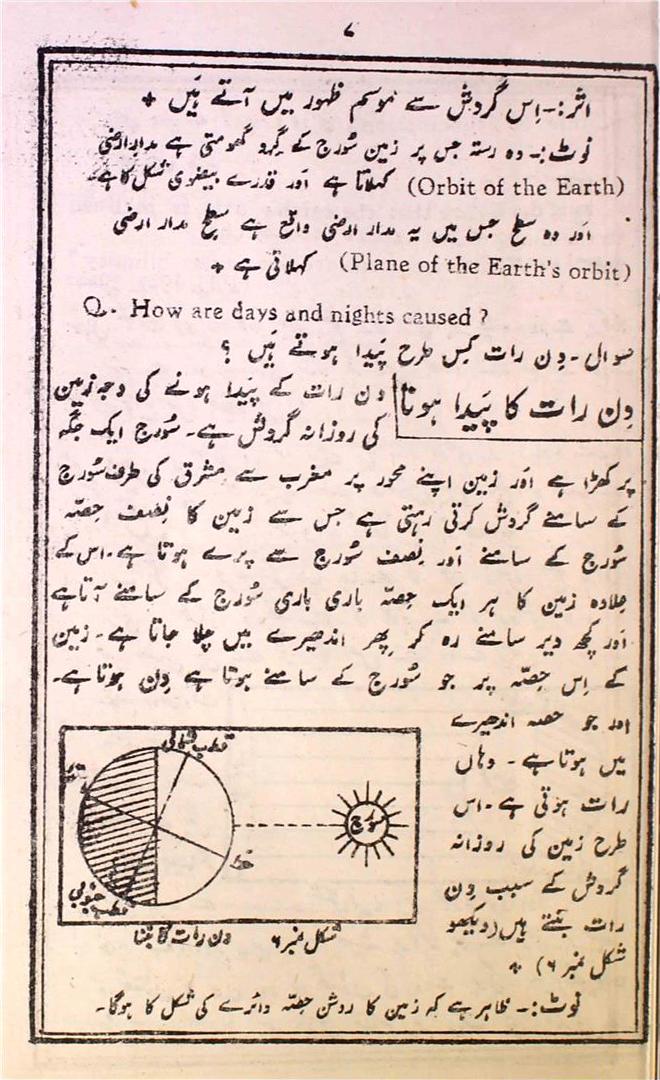 ۷
اثر:- اِس گردِش سے موسم ظہور میں آتے ہَیں +
نوٹ:- وہ رستہ جس پر زمین سُورج کے گِرد گھومتی ہے مدارِارضی
(Orbit of the Earth) کہلاتا ہے اَور قدرے بیضوی شکل کا ہے۔
اَور وہ سطح جس میں یہ مدار ارضی واقع ہے سطح مدار ارضی
(Plane of the Earth's orbit) کہلاتی ہے +
Q. How are days and nights caused ?
سوال - دِن رات کِس طرح پَیدا ہوتے ہَیں ؟
دِن رات کا پَیدا ہونا
دن رات کے پَیدا ہونے کی وجہ زمین
کی روزانہ گردِش ہے۔ سُورج ایک جگہ
پر کھڑا ہے اَور زمین اپنے محور پر مغرب سے مشرق کی طرف سُورج
کے سامنے گردش کرتی رہتی ہے جس سے زمین کا نِصف حِصّہ
سُورج کے سامنے اَور نِصف سُورج سے پرے ہوتا ہے۔ اس کے
علاوہ زمین کا ہر ایک حِصّہ باری باری سُورج کے سامنے آتا ہے
اَور کُچھ دیر سامنے رہ کر پِھر اندھیرے میں چلا جاتا ہے۔ زمین
کے اِس حِصّہ پر جو سُورج کے سامنے ہوتا ہے دِن ہوتا ہے۔
اور جو حصہ اندھیرے
میں ہوتا ہے۔ وہاں
رات ہوتی ہے۔ اس
طرح زمین کی روزانہ
گردش کے سبب دِن
رات بنتے ہیں (دیکھو
شکل نمبر ۶) +
قطب شمالی
سورج
خط
قطب جنوبی
شکل نمبر ۶ دن رات کا بننا
نوٹ:- ظاہر ہے کہ زمین کا روشن حِصّہ دائرے کی شکل کا ہوگا۔